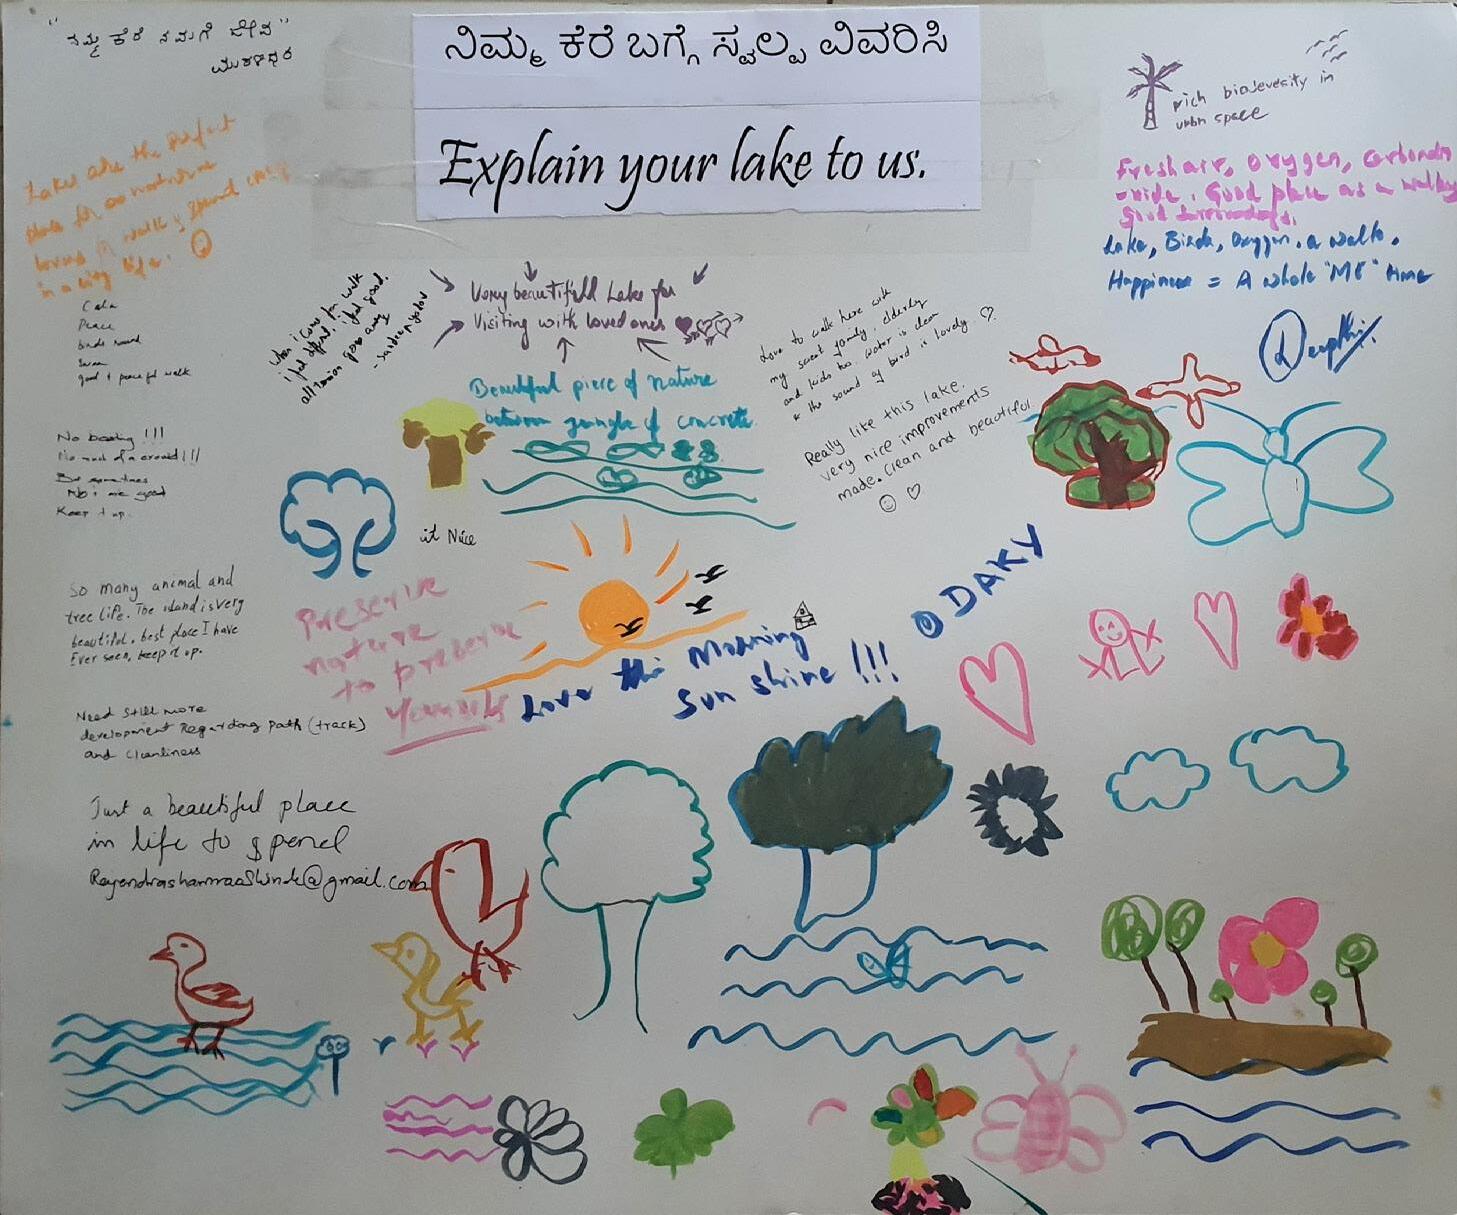 "ನಮ್ಮ ಕೆರೆ ನಮಗೆ ಜೀವ"
ಮುರಳಿಧರ
ನಿಮ್ಮ ಕೆರೆ ಬಗ್ಗೆ ಸ್ವಲ್ಪ ವಿವರಿಸಿ
Explain your lake to us.
rich biodeversity in
urbn space
Lakes are the perfect
place for an nature
lovers walk & spend
in a city life.
Fresh air, oxygen, Carbondi
oxide. Good place as a walking
Good surroundings.
Lake, Birds, Oxygen, a walk,
Happiness = A whole "ME" time
Deepthi
Calm
Peace
birds sound
Swan
good & peaceful walk
when i come for walk
i feel good.
all tension goes away
Very beautifull Lake for
Visiting with loved ones
Love to walk here with
my sweet family, elderly
and kids too. Water is clean
& the sound of bird is lovely
Beautiful piece of nature
between jungle of concrete
Really like this lake.
very nice improvements
made. Clean and beautiful.
No boating !!!
No much of a crowd !!!
good
Keep it up.
it Nice
@DAKY
So many animal and
tree life. The island is very
beautiful. best place I have
Ever seen, keep it up.
Preserve
nature
to preserve
yourself
Love this Morning
Sun shine !!!
Need still more
development Regarding path (track)
and cleanliness
Just a beautiful place
in life to spend